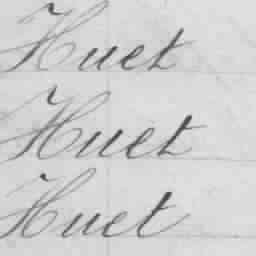 Huet
Huet
Huet